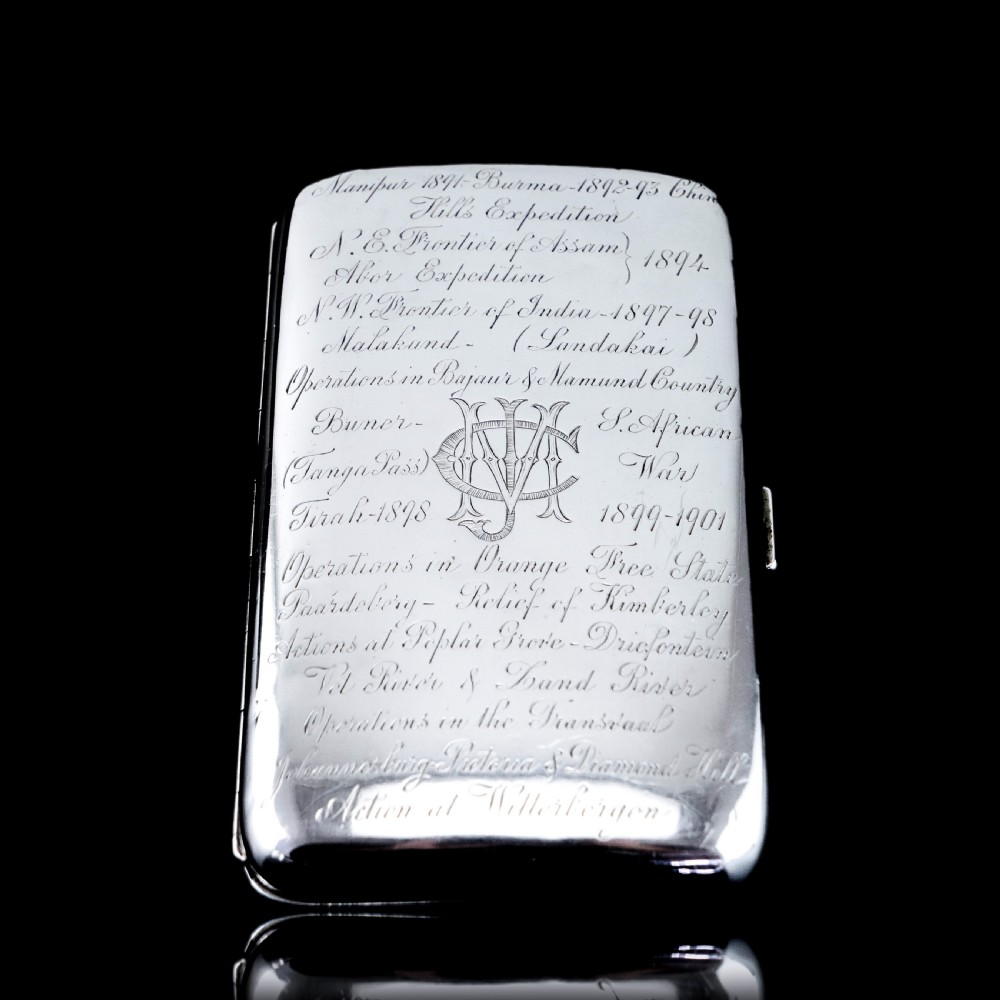 Manipur 1891-Burma-1892-93 Chin
Hills Expedition
N.E. Frontier of Assam } 1894
Abor Expedition
N.W. Frontier of India-1897-98
Malakund- (Landakai)
Operations in Bajaur & Mamund Country
Buner- S. African
(Tanga Pass) War
Tirah-1898 1899-1901
Operations in Orange Free State
Paardeberg- Relief of Kimberley
Actions at Poplar Grove-Driefontein
Vet River & Zand River
Operations in the Transvaal
Johannesburg-Pretoria & Diamond Hill
Action at Witterbergen